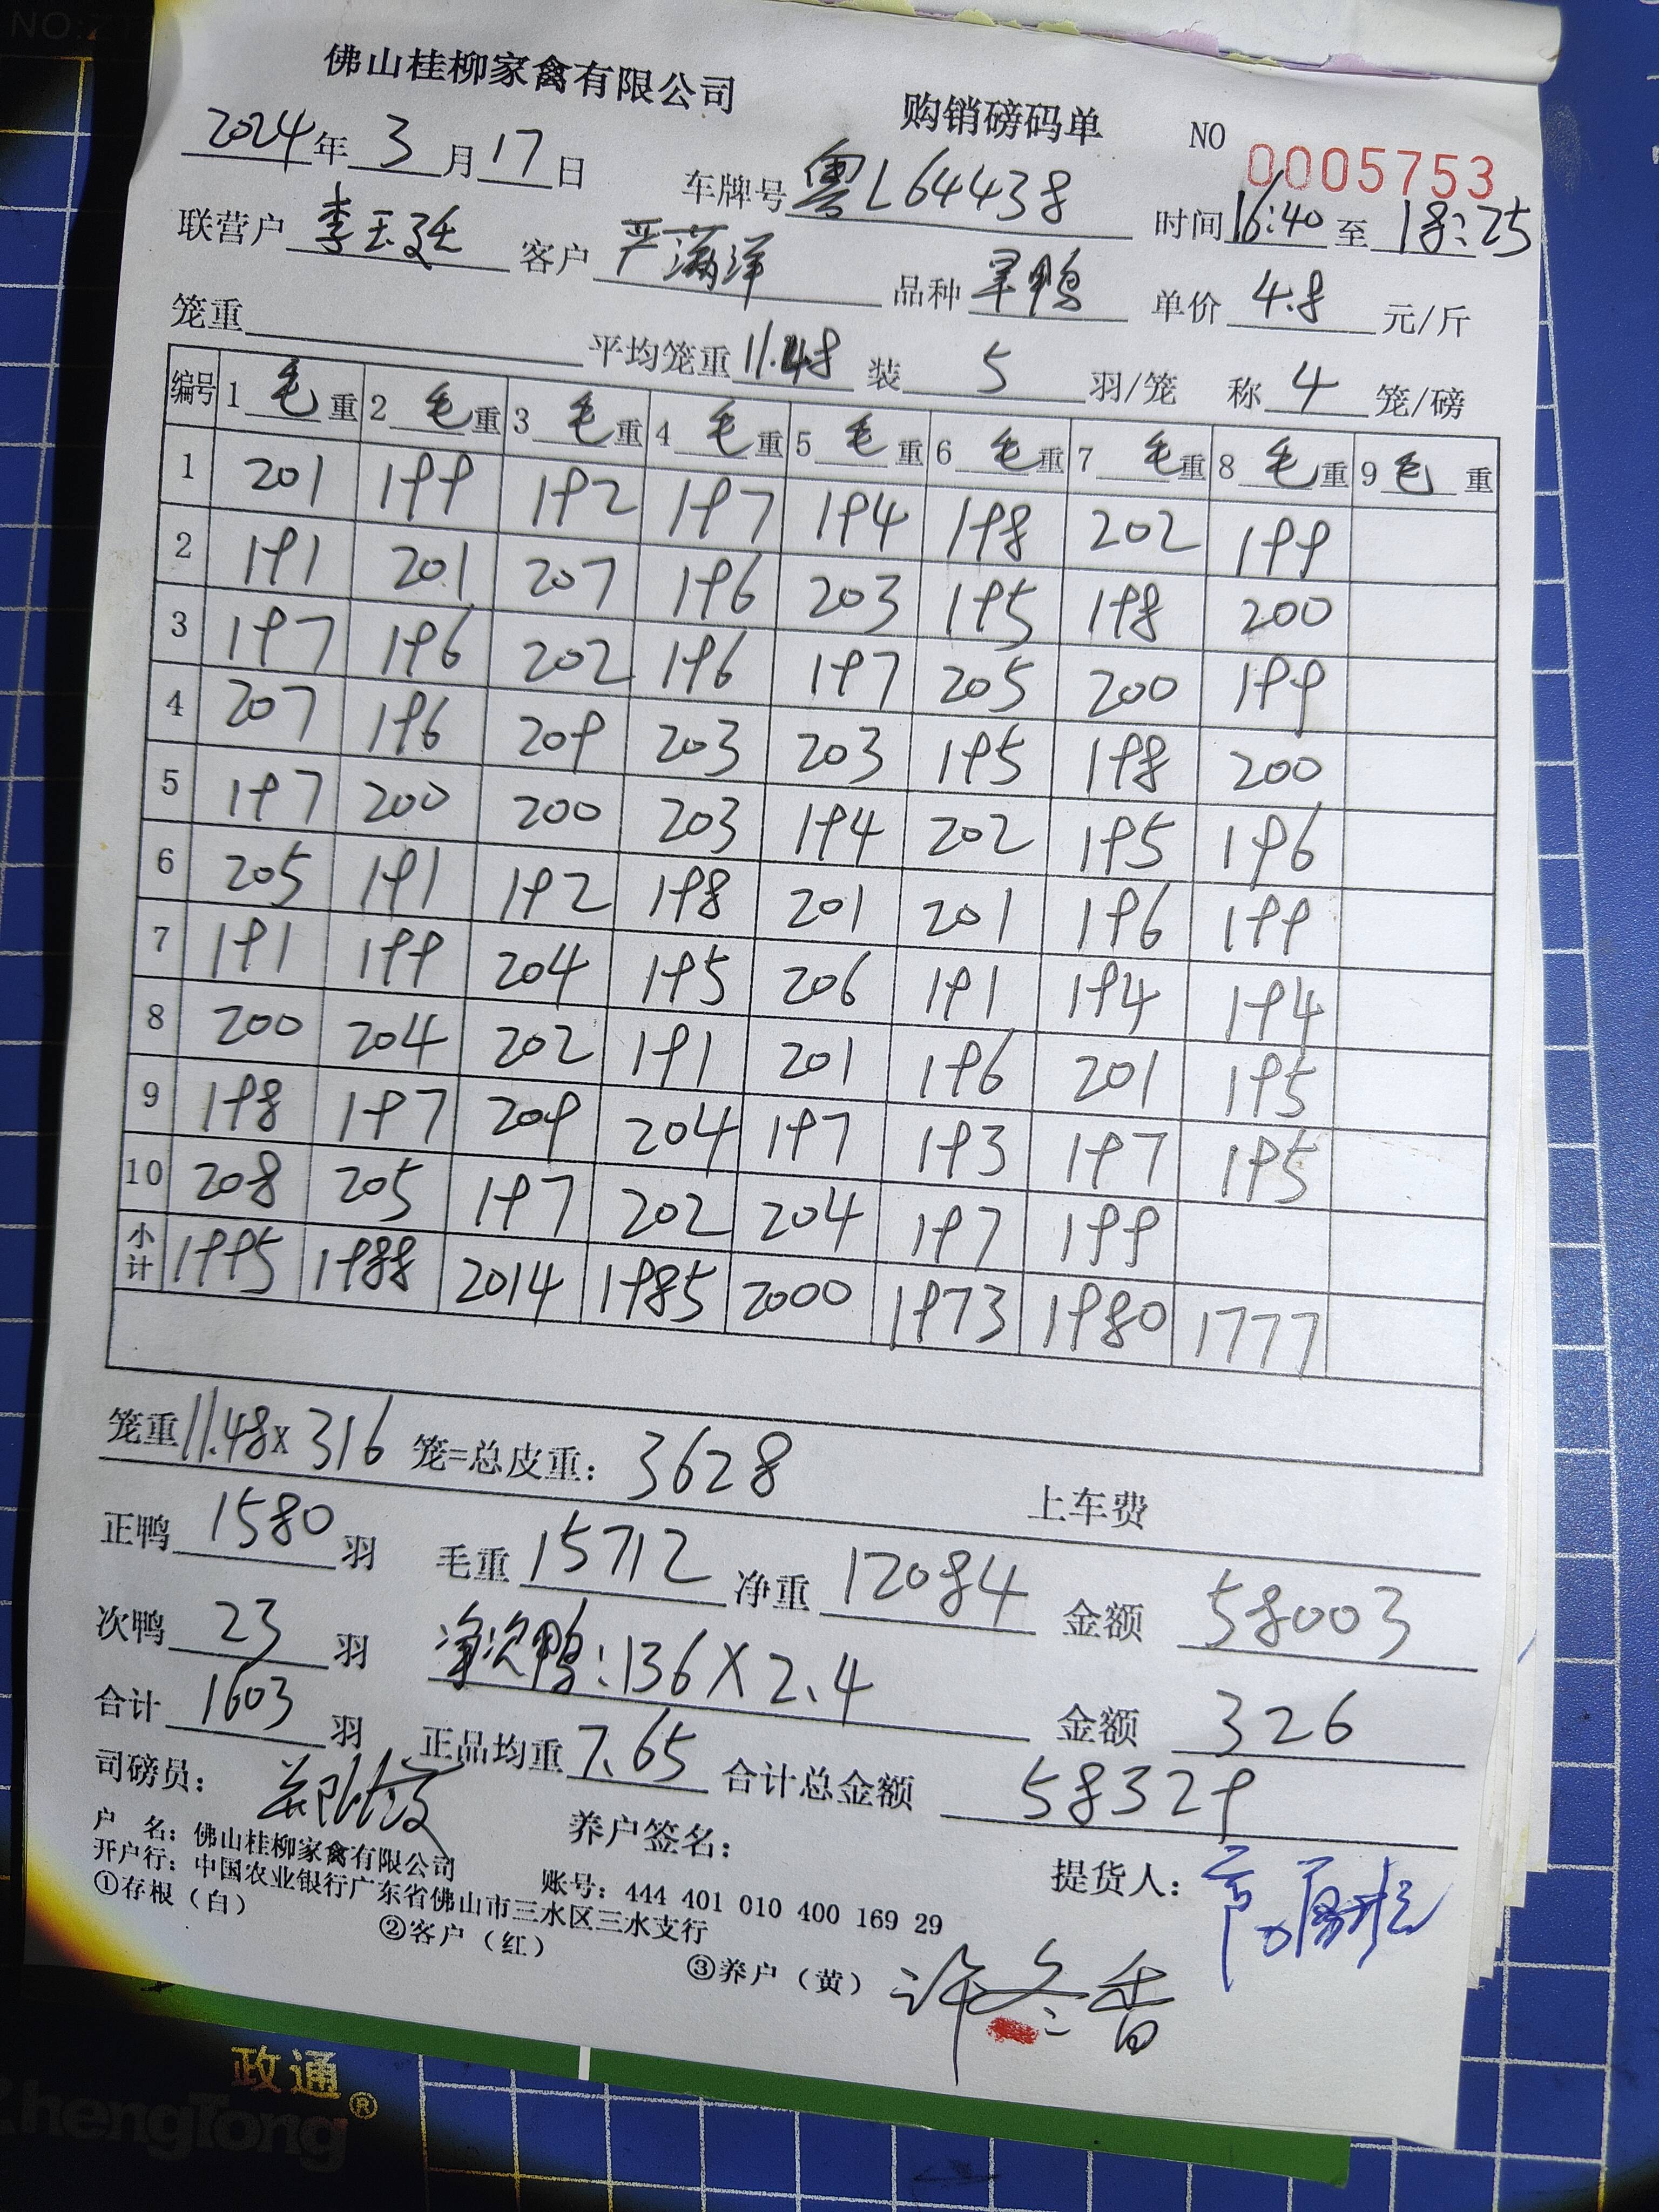 佛山桂柳家禽有限公司 购销磅码单 NO 0005753
2024年3月17日 车牌号粤L64438 时间16:40至18:25
联营户 李玉廷 客户 严满洋 品种 旱鸭 单价 4.8 元/斤
笼重 平均笼重11.48 装 5 羽/笼 称 4 笼/磅
编号 1毛重 2毛重 3毛重 4毛重 5毛重 6毛重 7毛重 8毛重 9毛重
1 201 199 192 197 194 198 202 199
2 191 201 207 196 203 195 198 200
3 197 196 202 196 197 205 200 199
4 207 196 209 203 203 195 198 200
5 197 200 200 203 194 202 195 196
6 205 191 192 198 201 201 196 199
7 191 199 204 195 206 191 194 194
8 200 204 202 191 201 196 201 195
9 198 197 209 204 197 193 197 195
10 208 205 197 202 204 197 199
小计 1995 1988 2014 1985 2000 1973 1980 1777
笼重11.48x316 笼=总皮重: 3628 上车费
正鸭 1580 羽 毛重 15712 净重 12084 金额 58003
次鸭 23 羽 净次鸭:136X2.4 金额 326
合计 1603 羽 正品均重 7.65 合计总金额 58329
司磅员: 养户签名: 提货人:
户 名: 佛山桂柳家禽有限公司 账号: 444 401 010 400 169 29
开户行: 中国农业银行广东省佛山市三水区三水支行
①存根(白) ②客户(红) ③养户(黄) 许冬香
政通®
ZhengTong